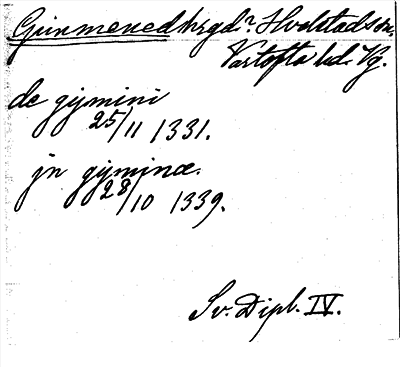 Gunmened hrgd? Hvalstads sn.
Vartofta hd. Vg.
de gymini
25/11 1331.
jn gyminæ.
28/10 1339.
Sv. Dipl. IV.